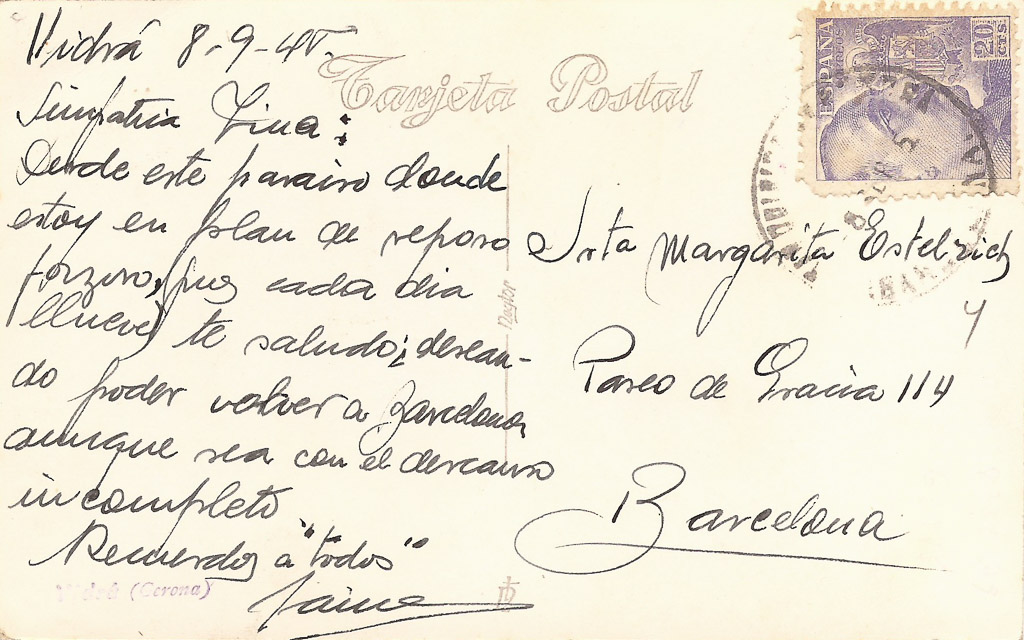 Vidrá 8-9-45.
Tarjeta Postal
ESPAÑA
CORREOS
20
CTS
Simpatica Tina:
Desde este paraiso donde
estoy en plan de reposo
forzoso, pues cada dia
llueve, te saludo; desean-
do poder volver a Barcelona,
aunque sea con el descanso
incompleto.
Recuerdos a "todos"
Jaime
Vidrá (Gerona)
Srta Margarita Estelrich
Paseo de Gracia 114
Barcelona